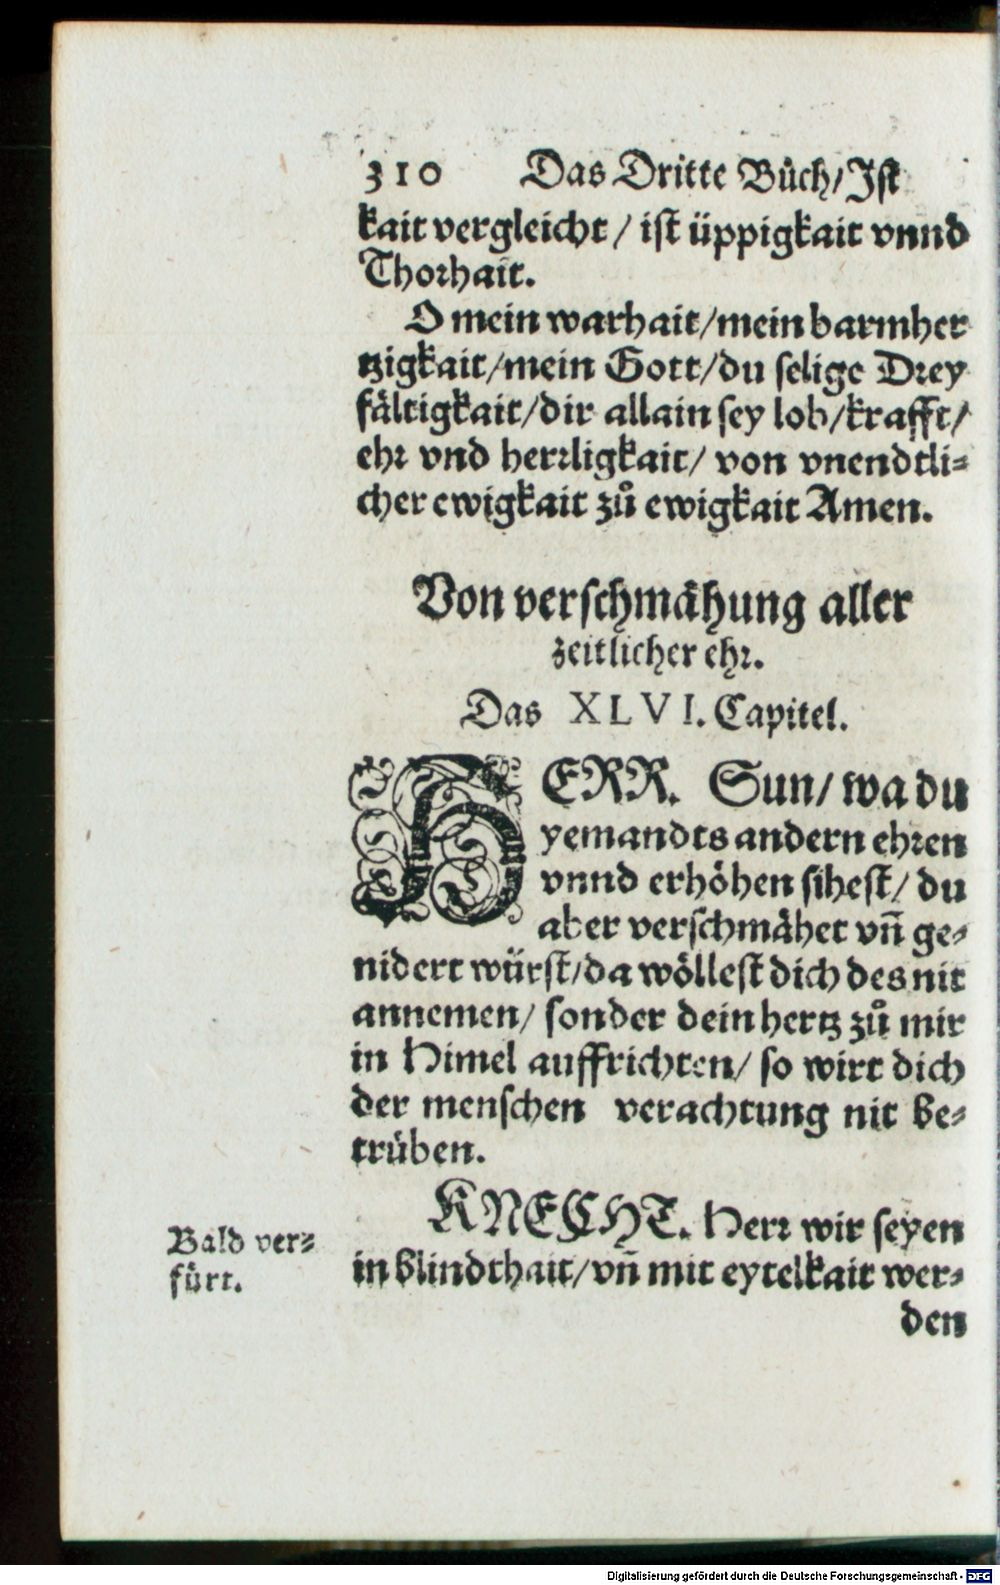 310 Das Dritte Bůch/ Ist
kait vergleicht / ist üppigkait vnnd
Thorhait.
O mein warhait/mein barmher
tzigkait/mein Gott/du selige Drey
fältigkait/dir allain sey lob/krafft/
ehr vnd herrligkait/ von vnendtli-
cher ewigkait zů ewigkait Amen.
Von verschmähung aller
zeitlicher ehr.
Das XLVI. Capitel.
HERR. Sun/ wa du
yemandts andern ehren
vnnd erhöhen sihest/ du
aber verschmähet vñ ge-
nidert würst/da wöllest dich des nit
annemen/ sonder dein hertz zů mir
in Himel auffrichten/ so wirt dich
der menschen verachtung nit be-
trüben.
KNECHT. Herr wir seyen
Bald ver-
fürt.
in blindthait/vñ mit eytelkait wer-
den
Digitalisierung gefördert durch die Deutsche Forschungsgemeinschaft - DFG